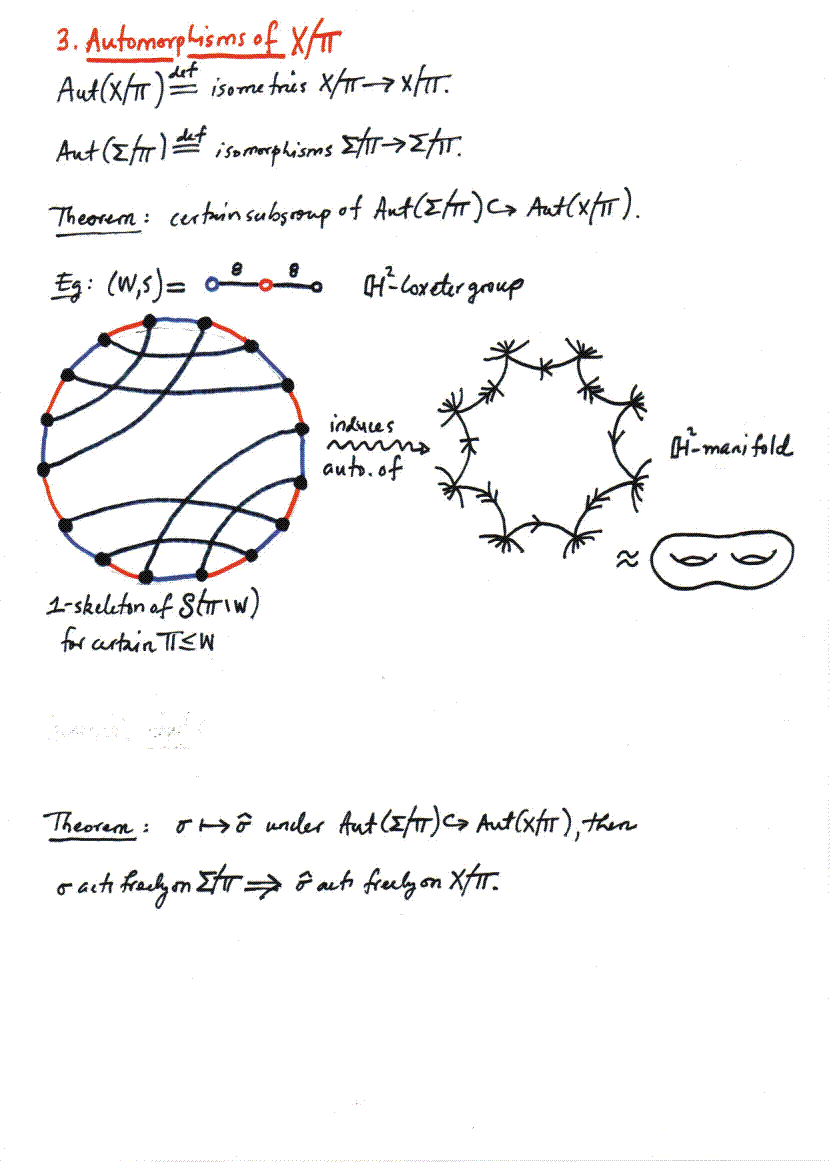 3. Automorphisms of X/Π
Aut(X/Π) def= isometries X/Π → X/Π.
Aut(Σ/Π) def= isomorphisms Σ/Π → Σ/Π.
Theorem: certain subgroup of Aut(Σ/Π) ↪ Aut(X/Π).
Eg: (W,S) = 8 8 ℍ²-Coxeter group
induces
auto. of
ℍ²-manifold
≈
1-skeleton of S(Π\W)
for certain Π ≤ W
Theorem: σ ↦ σ̂ under Aut(Σ/Π) ↪ Aut(X/Π), then
σ acts freely on Σ/Π ⟹ σ̂ acts freely on X/Π.